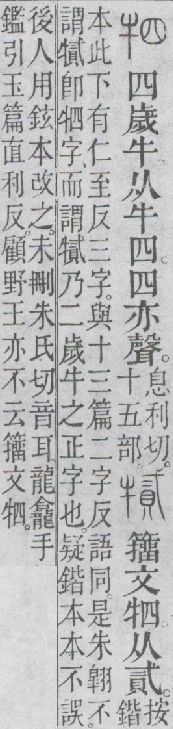 牭 四歲牛从牛四。四亦聲。息利切。十五部。𤛾 籒文牭从貳。按鍇
本此下有仁至反三字。與十三篇二字反語同。是朱翶不
謂𤛾卽牭字而謂𤛾乃二歲牛之正字也。疑鍇本本不誤
後人用鉉本改之。未刪朱氏切音耳。龍龕手
鑑引玉篇直利反。顧野王亦不云籒文牭。